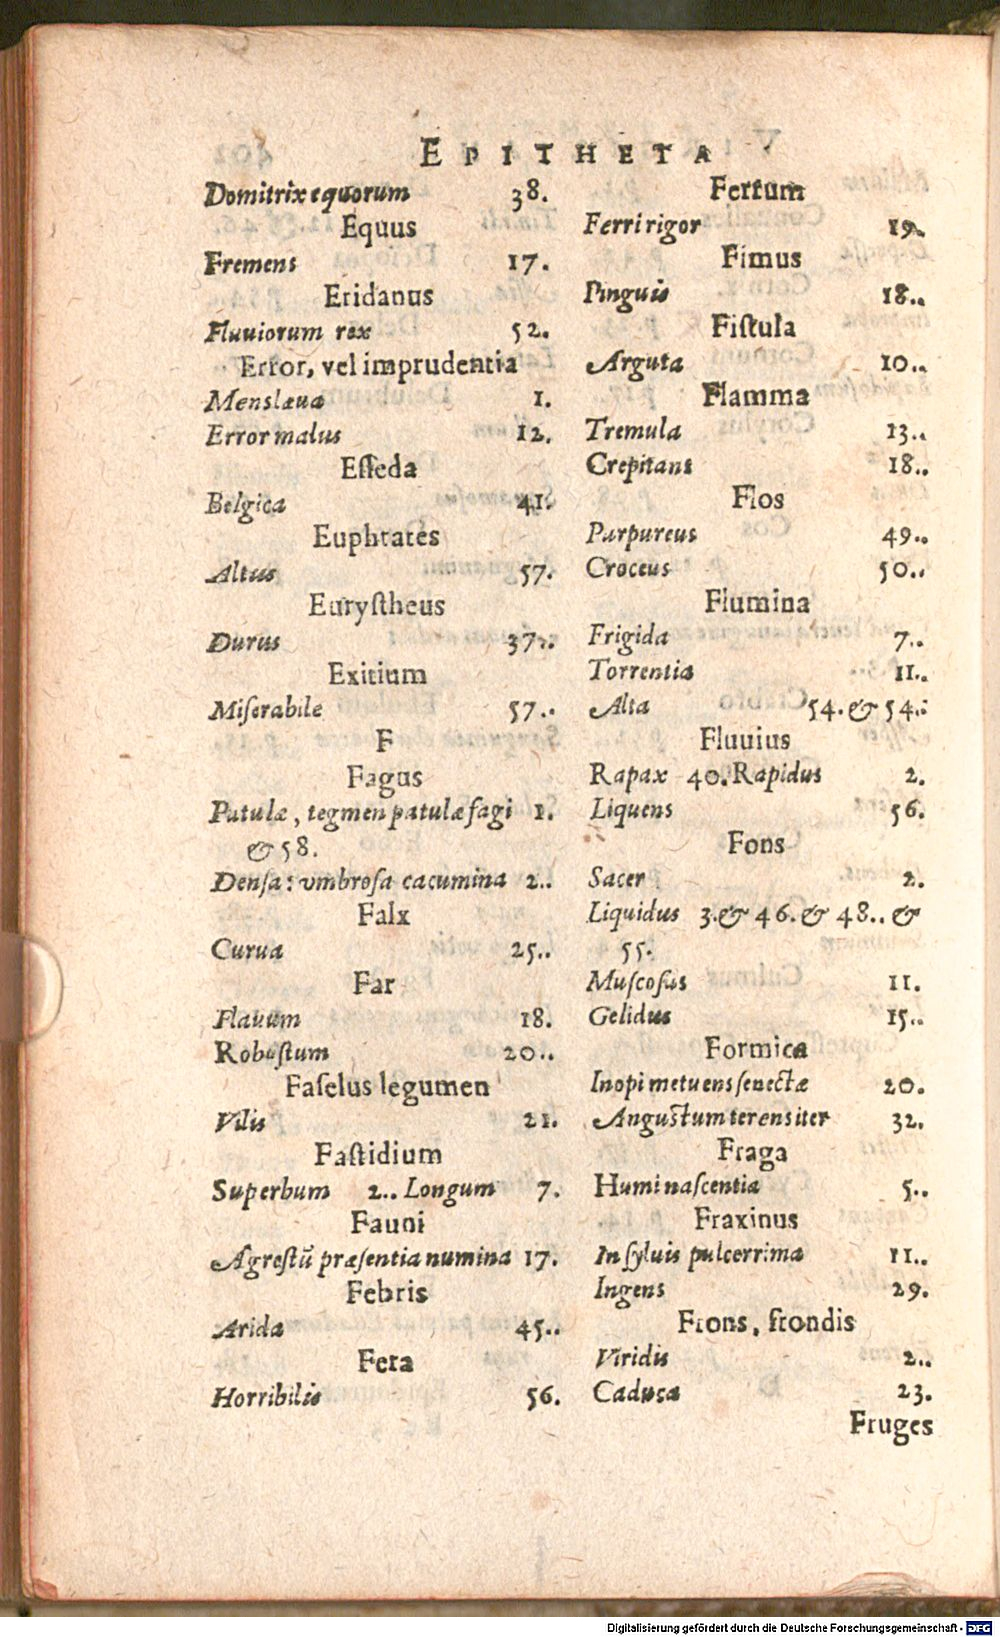 EPITHETA
Domitrix equorum 38.
Equus
Fremens 17.
Eridanus
Fluuiorum rex 52.
Error, vel imprudentia
Mens læua 1.
Error malus 12.
Esseda
Belgica 41.
Euphrates
Altus 57.
Eurystheus
Durus 37..
Exitium
Miserabile 57..
F
Fagus
Patulæ, tegmen patulæ fagi 1.
& 58.
Densa: vmbrosa cacumina 2..
Falx
Curua 25..
Far
Flauum 18.
Robustum 20..
Faselus legumen
Vilis 21.
Fastidium
Superbum 2.. Longum 7.
Fauni
Agrestũ præsentia numina 17.
Febris
Arida 45..
Fera
Horribilis 56.
Ferrum
Ferri rigor 19.
Fimus
Pinguis 18..
Fistula
Arguta 10..
Flamma
Tremula 13..
Crepitans 18..
Flos
Purpureus 49..
Croceus 50..
Flumina
Frigida 7..
Torrentia 11..
Alta 54. & 54..
Fluuius
Rapax 40. Rapidus 2.
Liquens 56.
Fons
Sacer 2.
Liquidus 3. & 46. & 48.. &
55.
Muscosus 11.
Gelidus 15..
Formica
Inopi metuens senectæ 20.
Angustum terens iter 32.
Fraga
Humi nascentia 5..
Fraxinus
In syluis pulcerrima 11..
Ingens 29.
Frons, frondis
Viridis 2..
Caduca 23.
Fruges
Digitalisierung gefördert durch die Deutsche Forschungsgemeinschaft - DFG